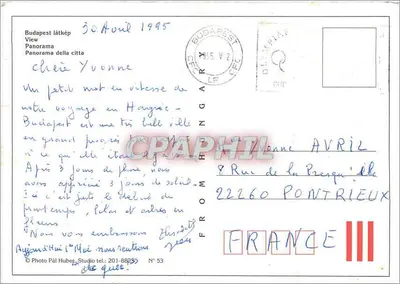 Budapest látkép
View
Panorama
Panorama della citta
30 Avril 1995
Chère Yvonne
Un petit mot en vitesse de
notre voyage en Hongrie.
Budapest est une très belle ville
en grand progrès
à ce qu'elle était
Après 3 jours de pluie, nous
avons apprécié 3 jours de soleil.
Ici c'est juste le début du
printemps, lilas et arbres en
fleurs
Nous vous embrassons
Jean
Aujourd'hui 1er Mai nous sentons
© Photo Pál Huber, Studio tel.: 201-8885
N° 53
FROM HUNGARY
BUDAPEST
PRCARPHIL.COM
Yvonne AVRIL
8 Rue de la Presqu'île
22260 PONTRIEUX
FRANCE